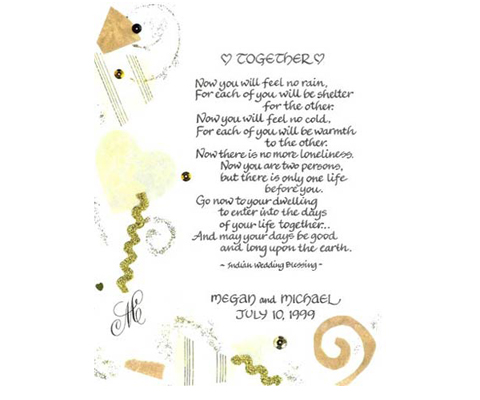 ♡ TOGETHER ♡
Now you will feel no rain,
For each of you will be shelter
for the other.
Now you will feel no cold,
For each of you will be warmth
to the other.
Now there is no more loneliness.
Now you are two persons,
but there is only one life
before you.
Go now to your dwelling
to enter into the days
of your life together...
And may your days be good
and long upon the earth.
~ Indian Wedding Blessing ~
MEGAN and MICHAEL
JULY 10, 1999
M